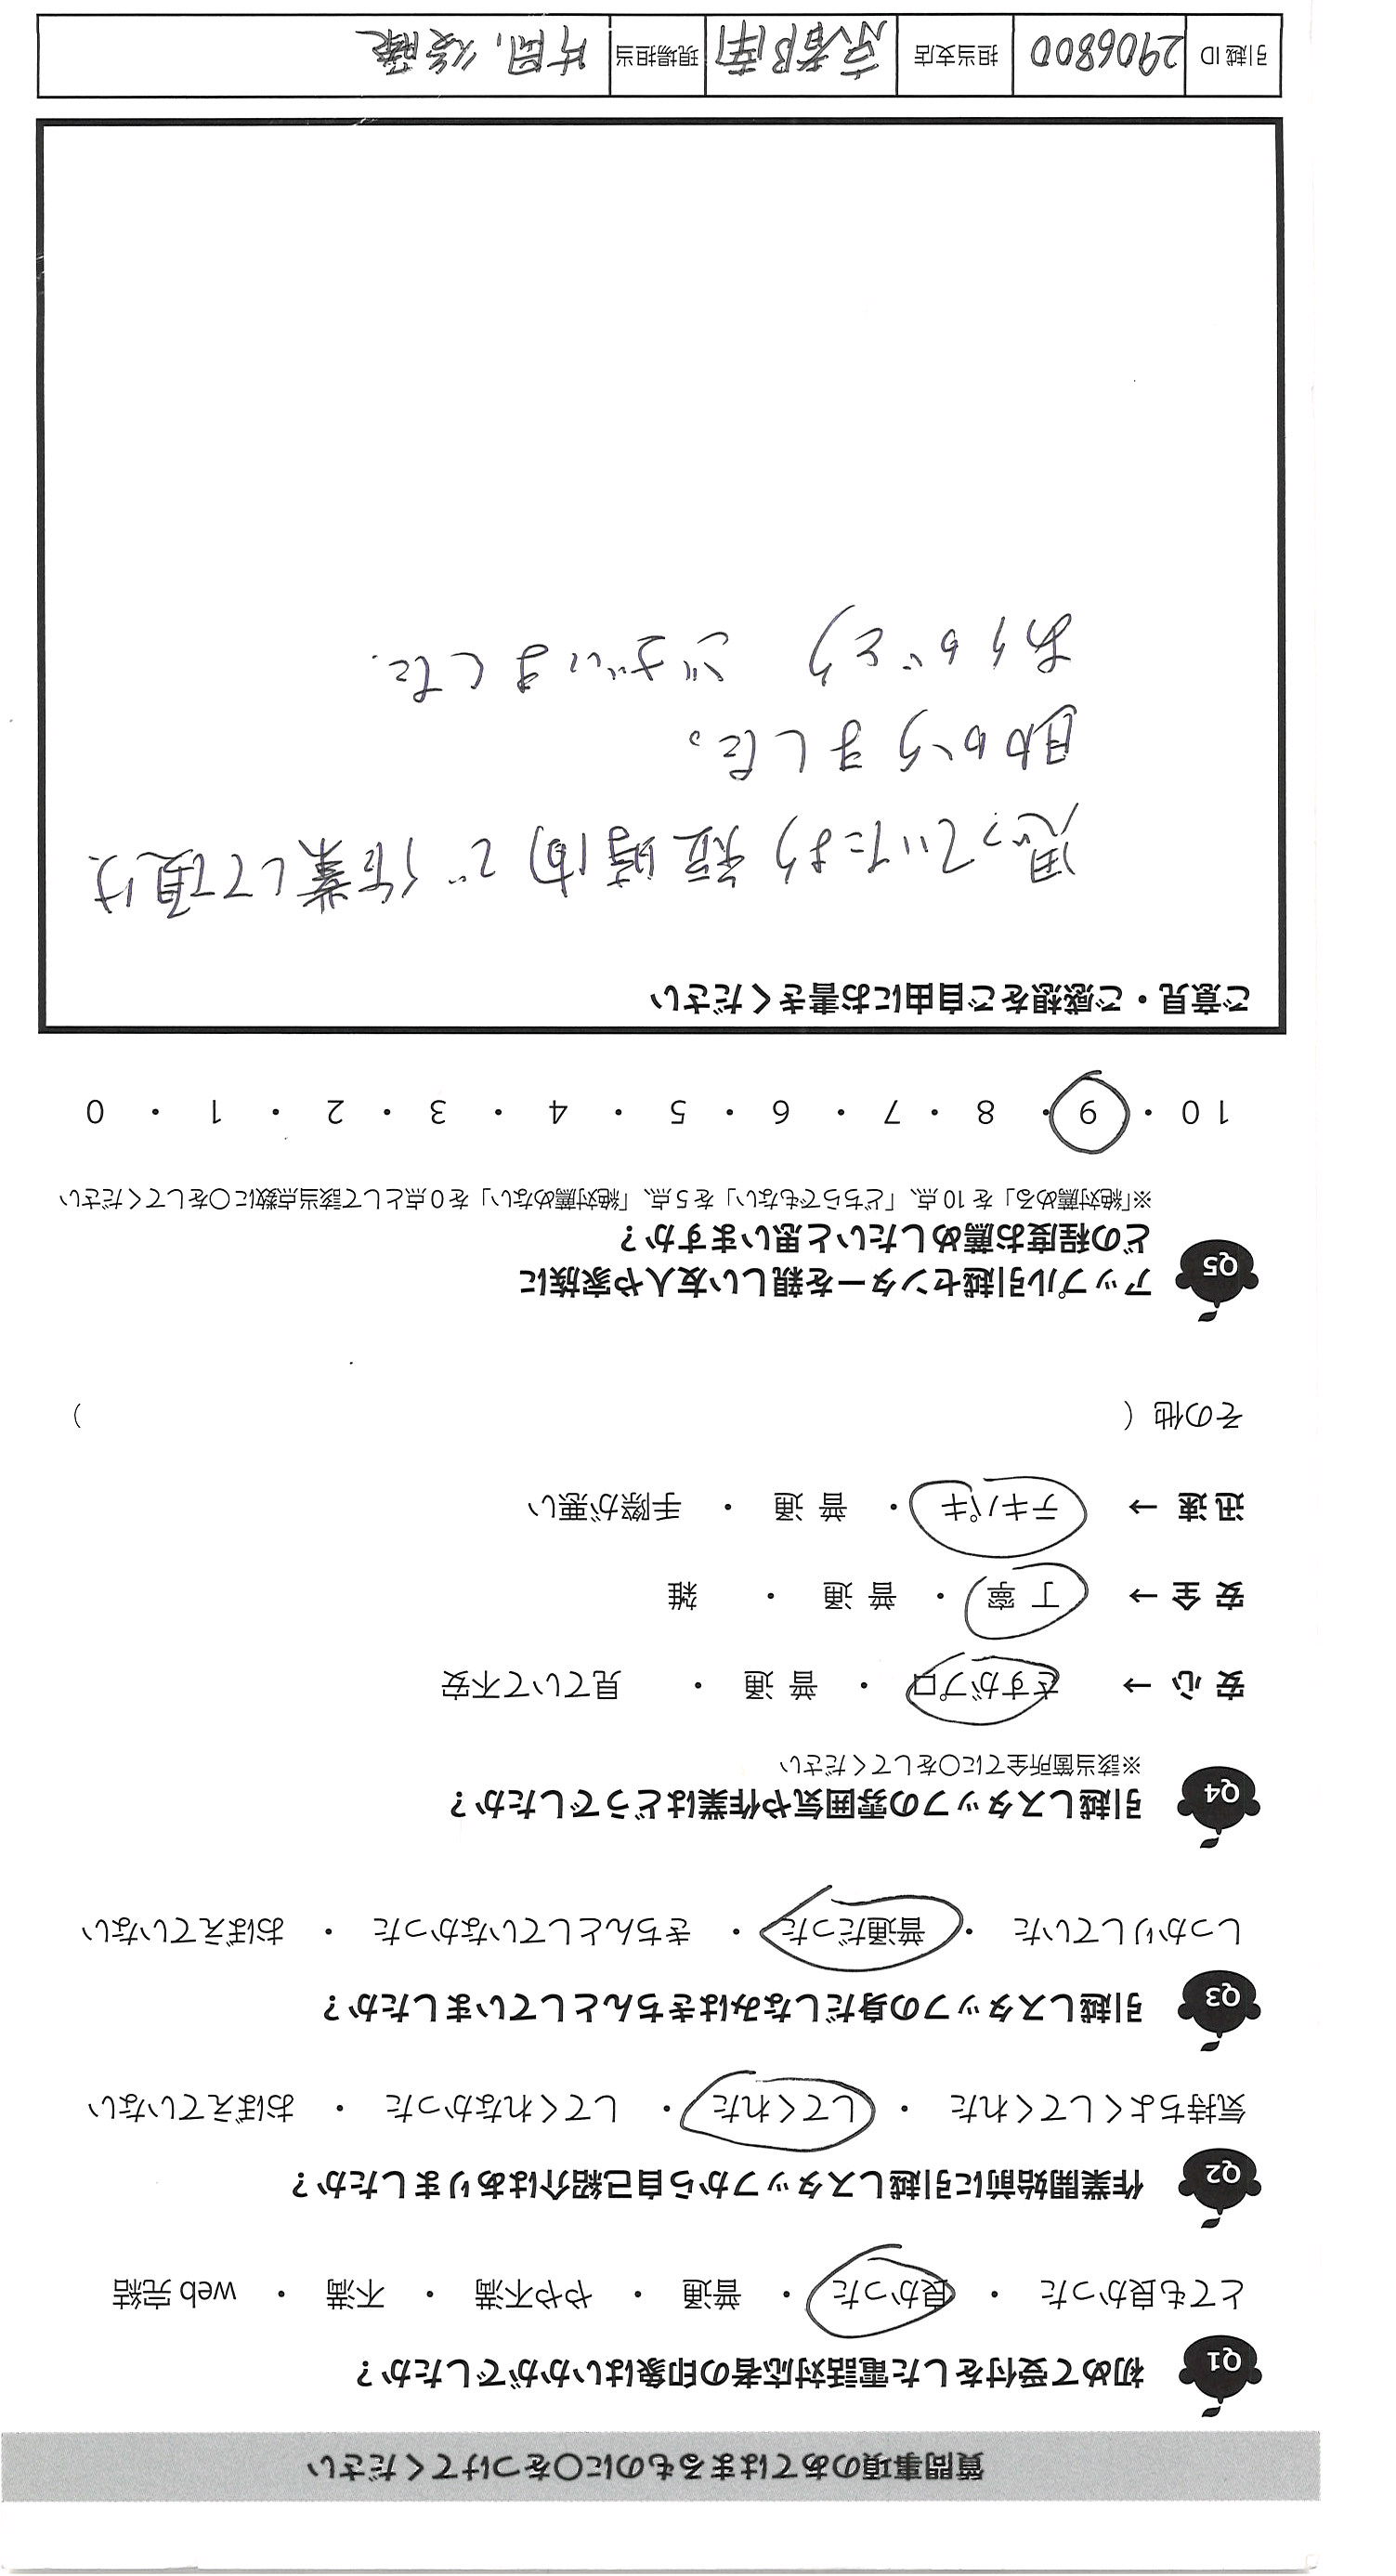 質問事項のあてはまるものに○をつけてください
Q1 初めて受付をした電話対応者の印象はいかがでしたか？
とても良かった ・ 良かった ・ 普通 ・ やや不満 ・ 不満 ・ web 完結
Q2 作業開始前に引越しスタッフから自己紹介はありましたか？
気持ちよくしてくれた ・ してくれた ・ してくれなかった ・ おぼえていない
Q3 引越しスタッフの身だしなみはきちんとしていましたか？
しっかりしていた ・ 普通だった ・ きちんとしていなかった ・ おぼえていない
Q4 引越しスタッフの雰囲気や作業はどうでしたか？
※該当箇所全てに○をしてください
安 心 → さすがプロ ・ 普 通 ・ 見ていて不安
安 全 → 丁 寧 ・ 普 通 ・ 雑
迅 速 → テキパキ ・ 普 通 ・ 手際が悪い
その他 ( )
Q5 アップル引越センターを親しい友人や家族に
どの程度お薦めしたいと思いますか？
※「絶対薦める」を 10 点、「どちらでもない」を 5 点、「絶対薦めない」を 0 点として該当点数に○をしてください
10 ・ 9 ・ 8 ・ 7 ・ 6 ・ 5 ・ 4 ・ 3 ・ 2 ・ 1 ・ 0
ご意見・ご感想をご自由にお書きください
思っていたより短時間で作業して頂け
助かりました。
ありがとう ございました.
引越 ID 2906800 担当支店 京都南 現場担当 片岡, 後藤